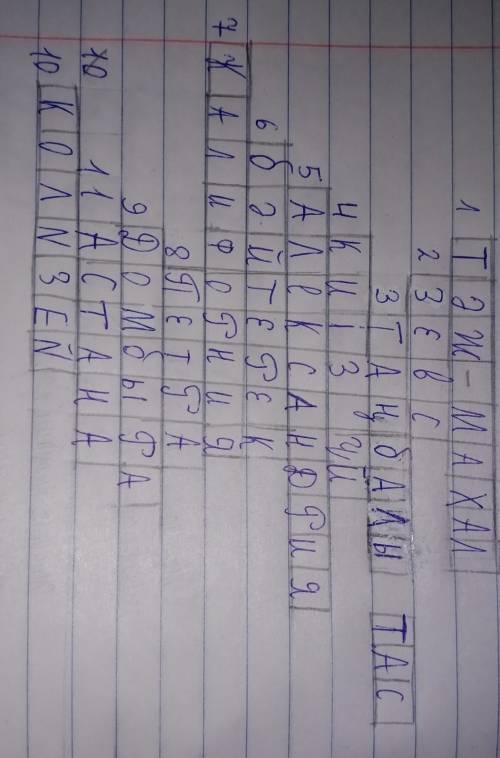 1 ТӘЖ-МАХАЛ
2 ЗЕВС
3 ТАҢБАЛЫ ТАС
4 КИІЗ ҮЙ
5 АЛЕКСАНДРИЯ
6 бәйтерек
7 КАЛИФОРНИЯ
8 ПЕТРА
9 ДОМбЫРА
11 АСТАНА
10 КОЛИЗЕЙ